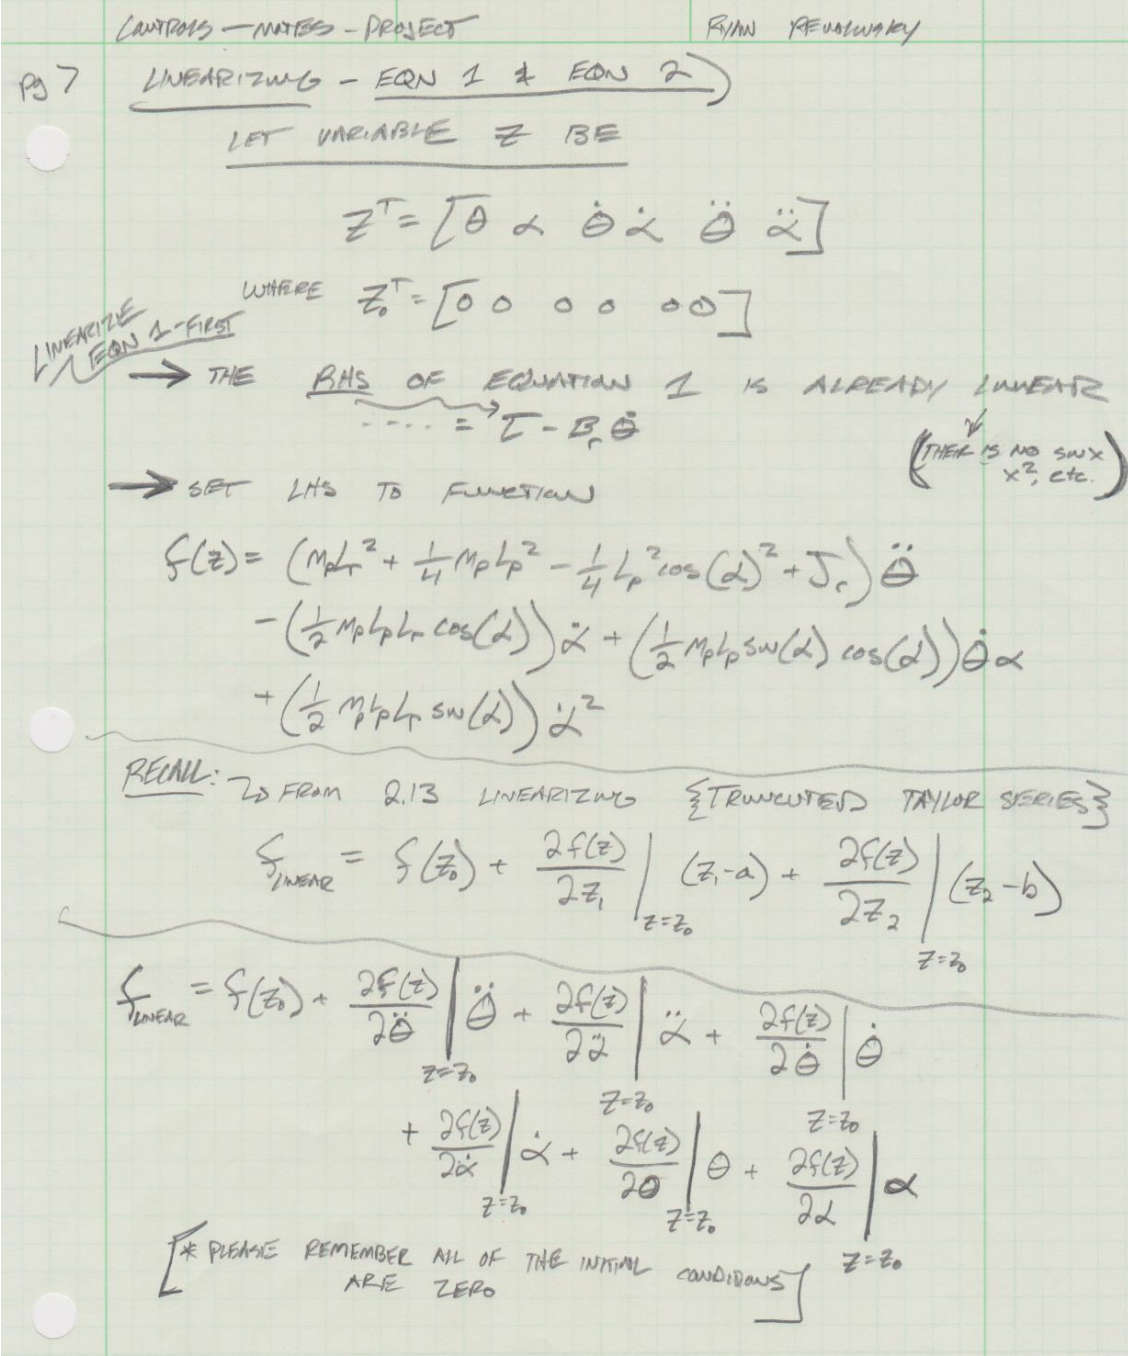 CONTROLS - NOTES - PROJECT RYAN REVOLINSKY
pg 7 LINEARIZING - EQN 1 & EQN 2)
LET VARIABLE Z BE
Z^T = [θ α θ̇ α̇ θ̈ α̈]
WHERE Z₀^T = [0 0 0 0 0 0]
LINEARIZE
EQN 1 - FIRST
→ THE RHS OF EQUATION 1 IS ALREADY LINEAR
.... = τ - B_r θ̇
(THEIR IS NO SIN X
X², etc.)
→ SET LHS TO FUNCTION
f(z) = (M_p L_r² + 1/4 M_p L_p² - 1/4 L_p² cos(α)² + J_r) θ̈
- (1/2 M_p L_p L_r cos(α)) α̈ + (1/2 M_p L_p sin(α) cos(α)) θ̇ α
+ (1/2 M_p L_p L_r sin(α)) α̇²
RECALL: → FROM 2.13 LINEARIZING {TRUNCUTED TAYLOR SERIES}
f_LINEAR = f(z₀) + ∂f(z)/∂z₁ |_{z=z₀} (z₁-a) + ∂f(z)/∂z₂ |_{z=z₀} (z₂-b)
f_LINEAR = f(z₀) + ∂f(z)/∂θ̈ |_{z=z₀} θ̈ + ∂f(z)/∂α̈ |_{z=z₀} α̈ + ∂f(z)/∂θ̇ |_{z=z₀} θ̇
+ ∂f(z)/∂α̇ |_{z=z₀} α̇ + ∂f(z)/∂θ |_{z=z₀} θ + ∂f(z)/∂α |_{z=z₀} α
[* PLEASE REMEMBER ALL OF THE INITIAL CONDIDONS
ARE ZERO]